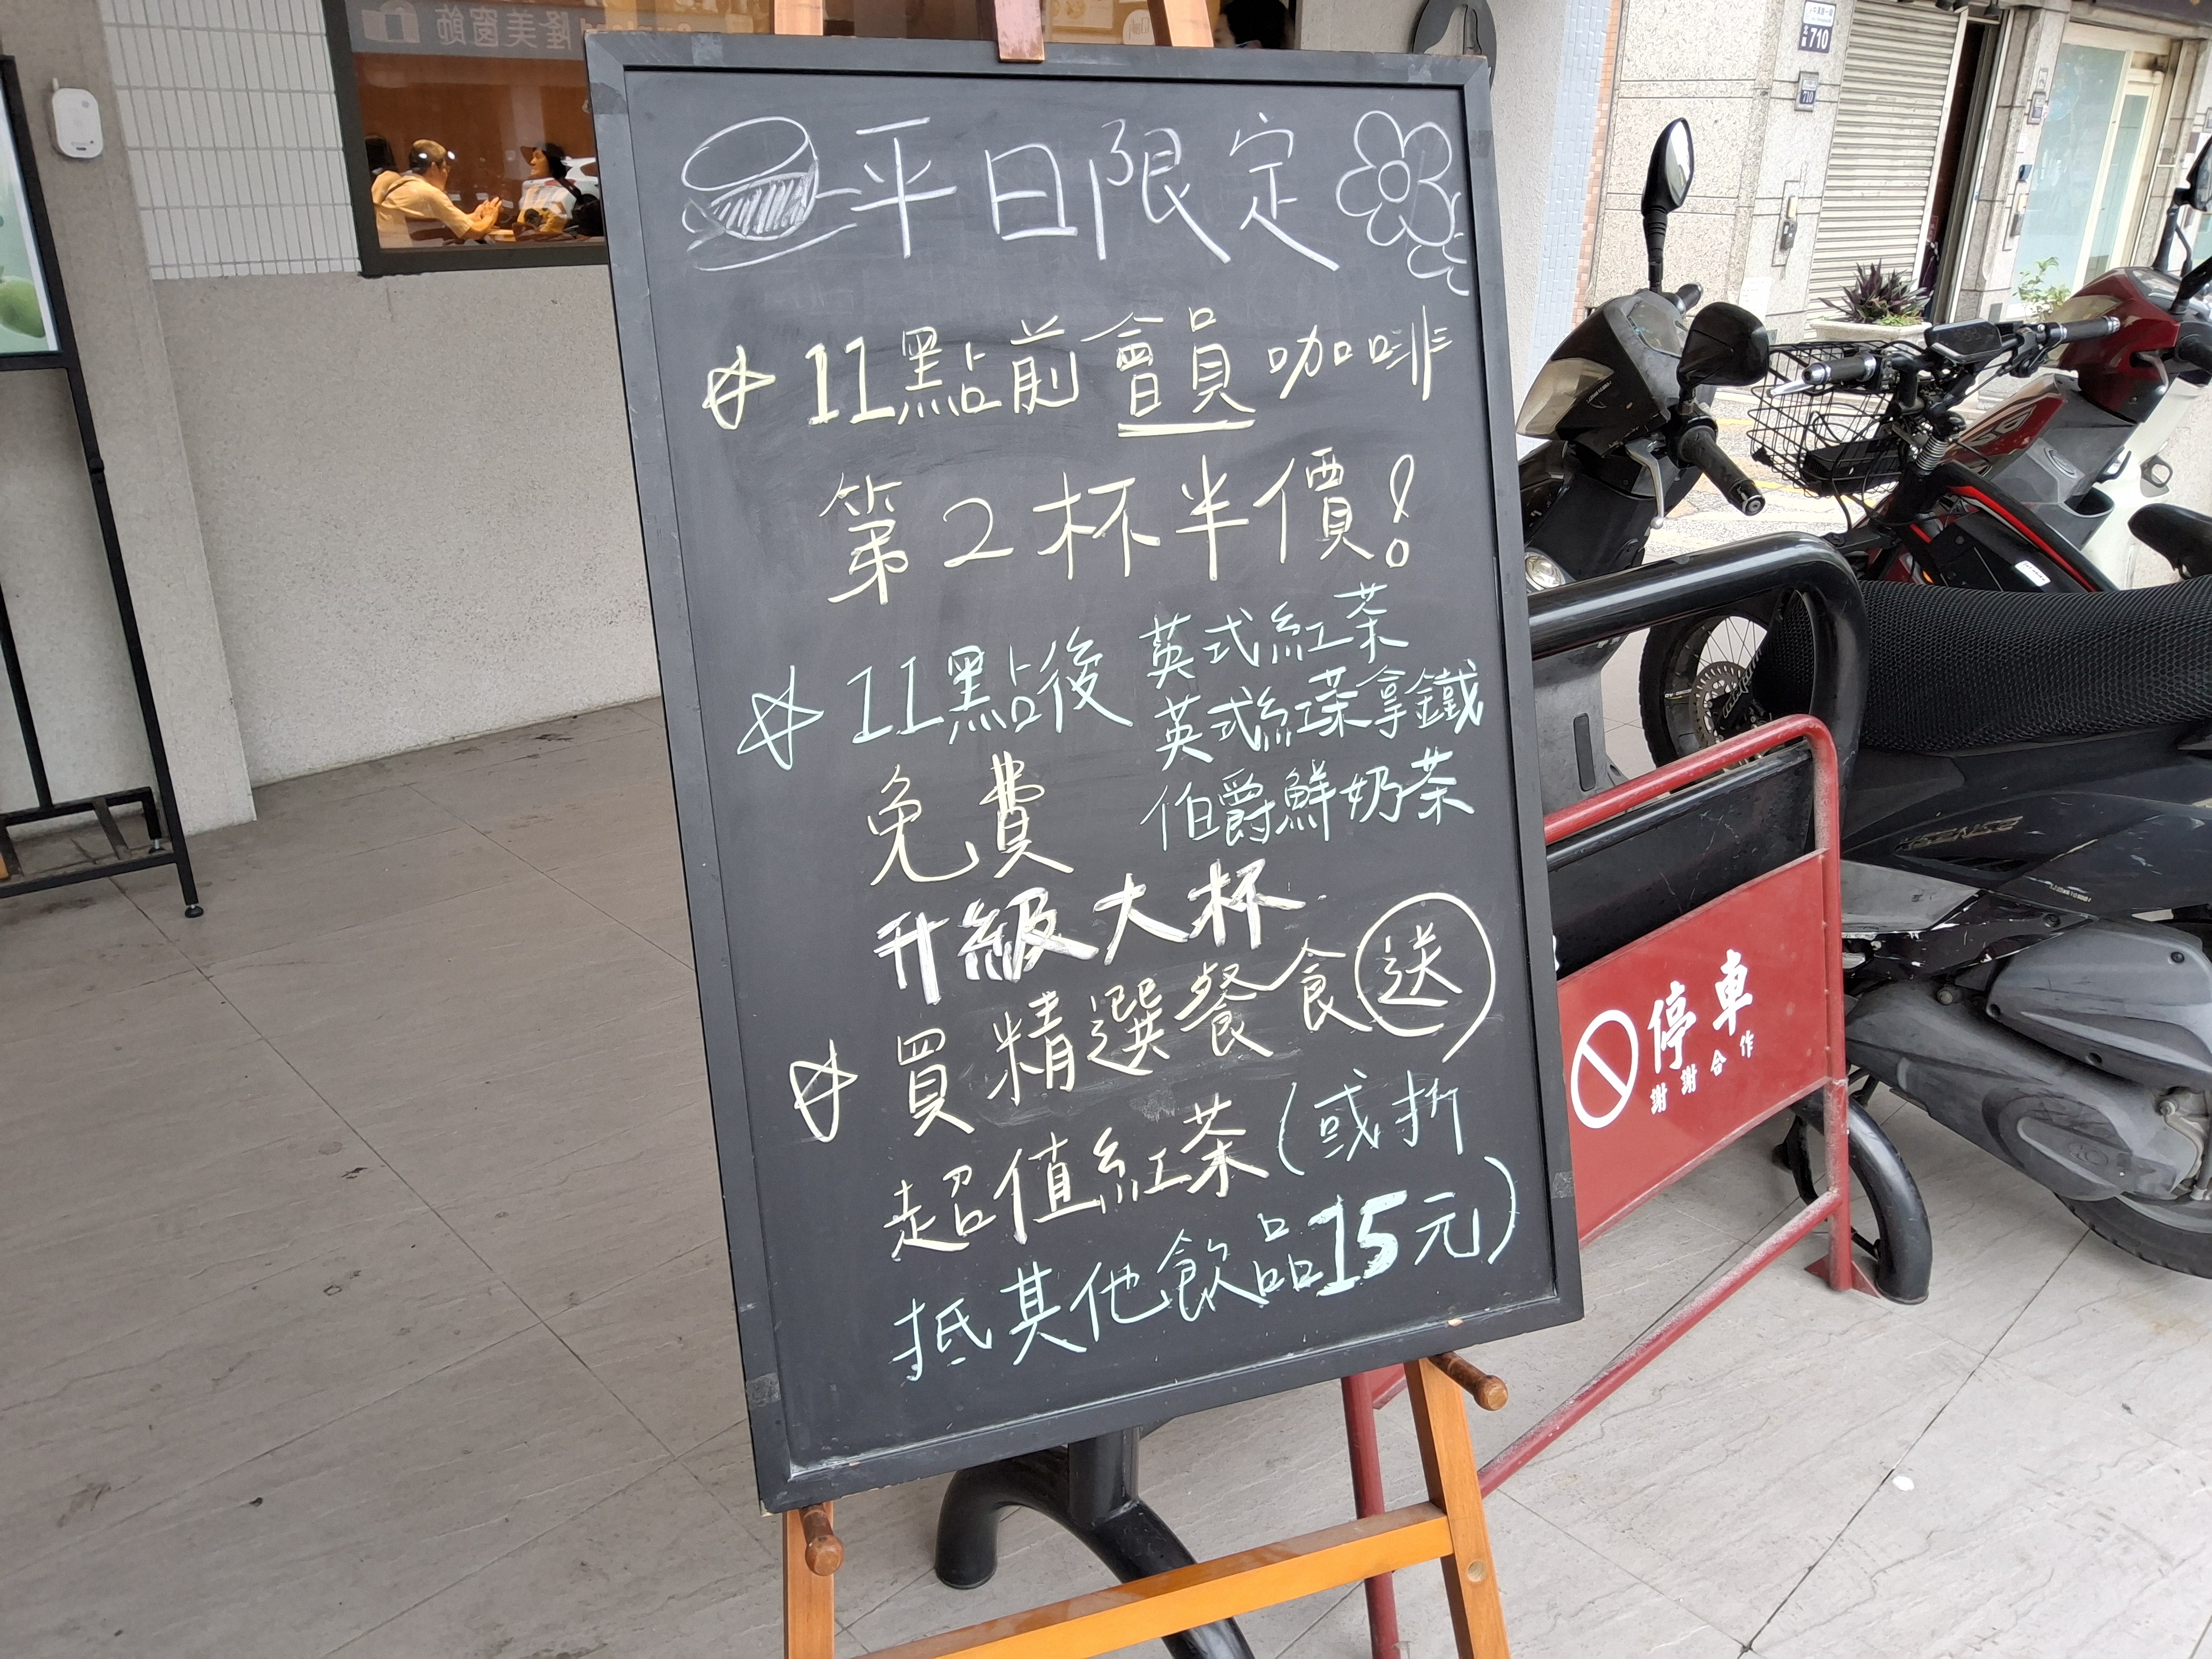 平日限定
11點前會員咖啡
第2杯半價!
11點後 英式紅茶
英式紅茶拿鐵
伯爵鮮奶茶
免費
升級大杯
買精選餐食送
超值紅茶(或折
抵其他飲品15元)
停車
謝謝合作
710
710
隆美窗飾
XSENSE